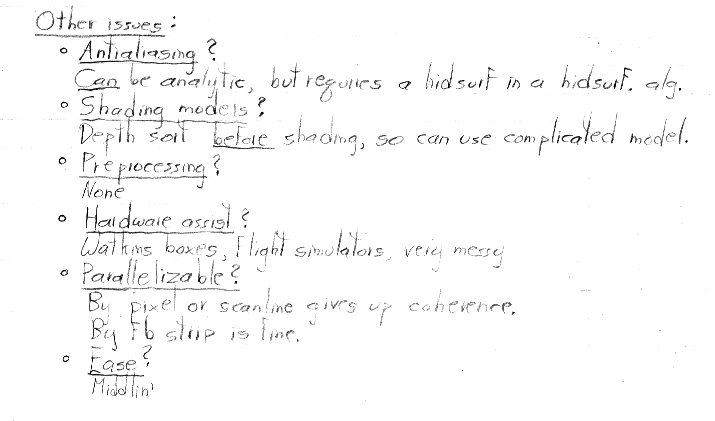 Other issues:
◦ Antialiasing?
Can be analytic, but requires a hidsurf in a hidsurf. alg.
◦ Shading models?
Depth sort before shading, so can use complicated model.
◦ Preprocessing?
None
◦ Hardware assist?
Watkins boxes, flight simulators, very messy
◦ Parallelizable?
By pixel or scanline gives up coherence.
By Fb strip is fine.
◦ Ease?
Middlin'